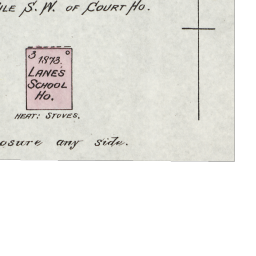 S. W. of Court Ho.
3
1873.
Lane's
School
Ho.
Heat: Stoves.
any side.